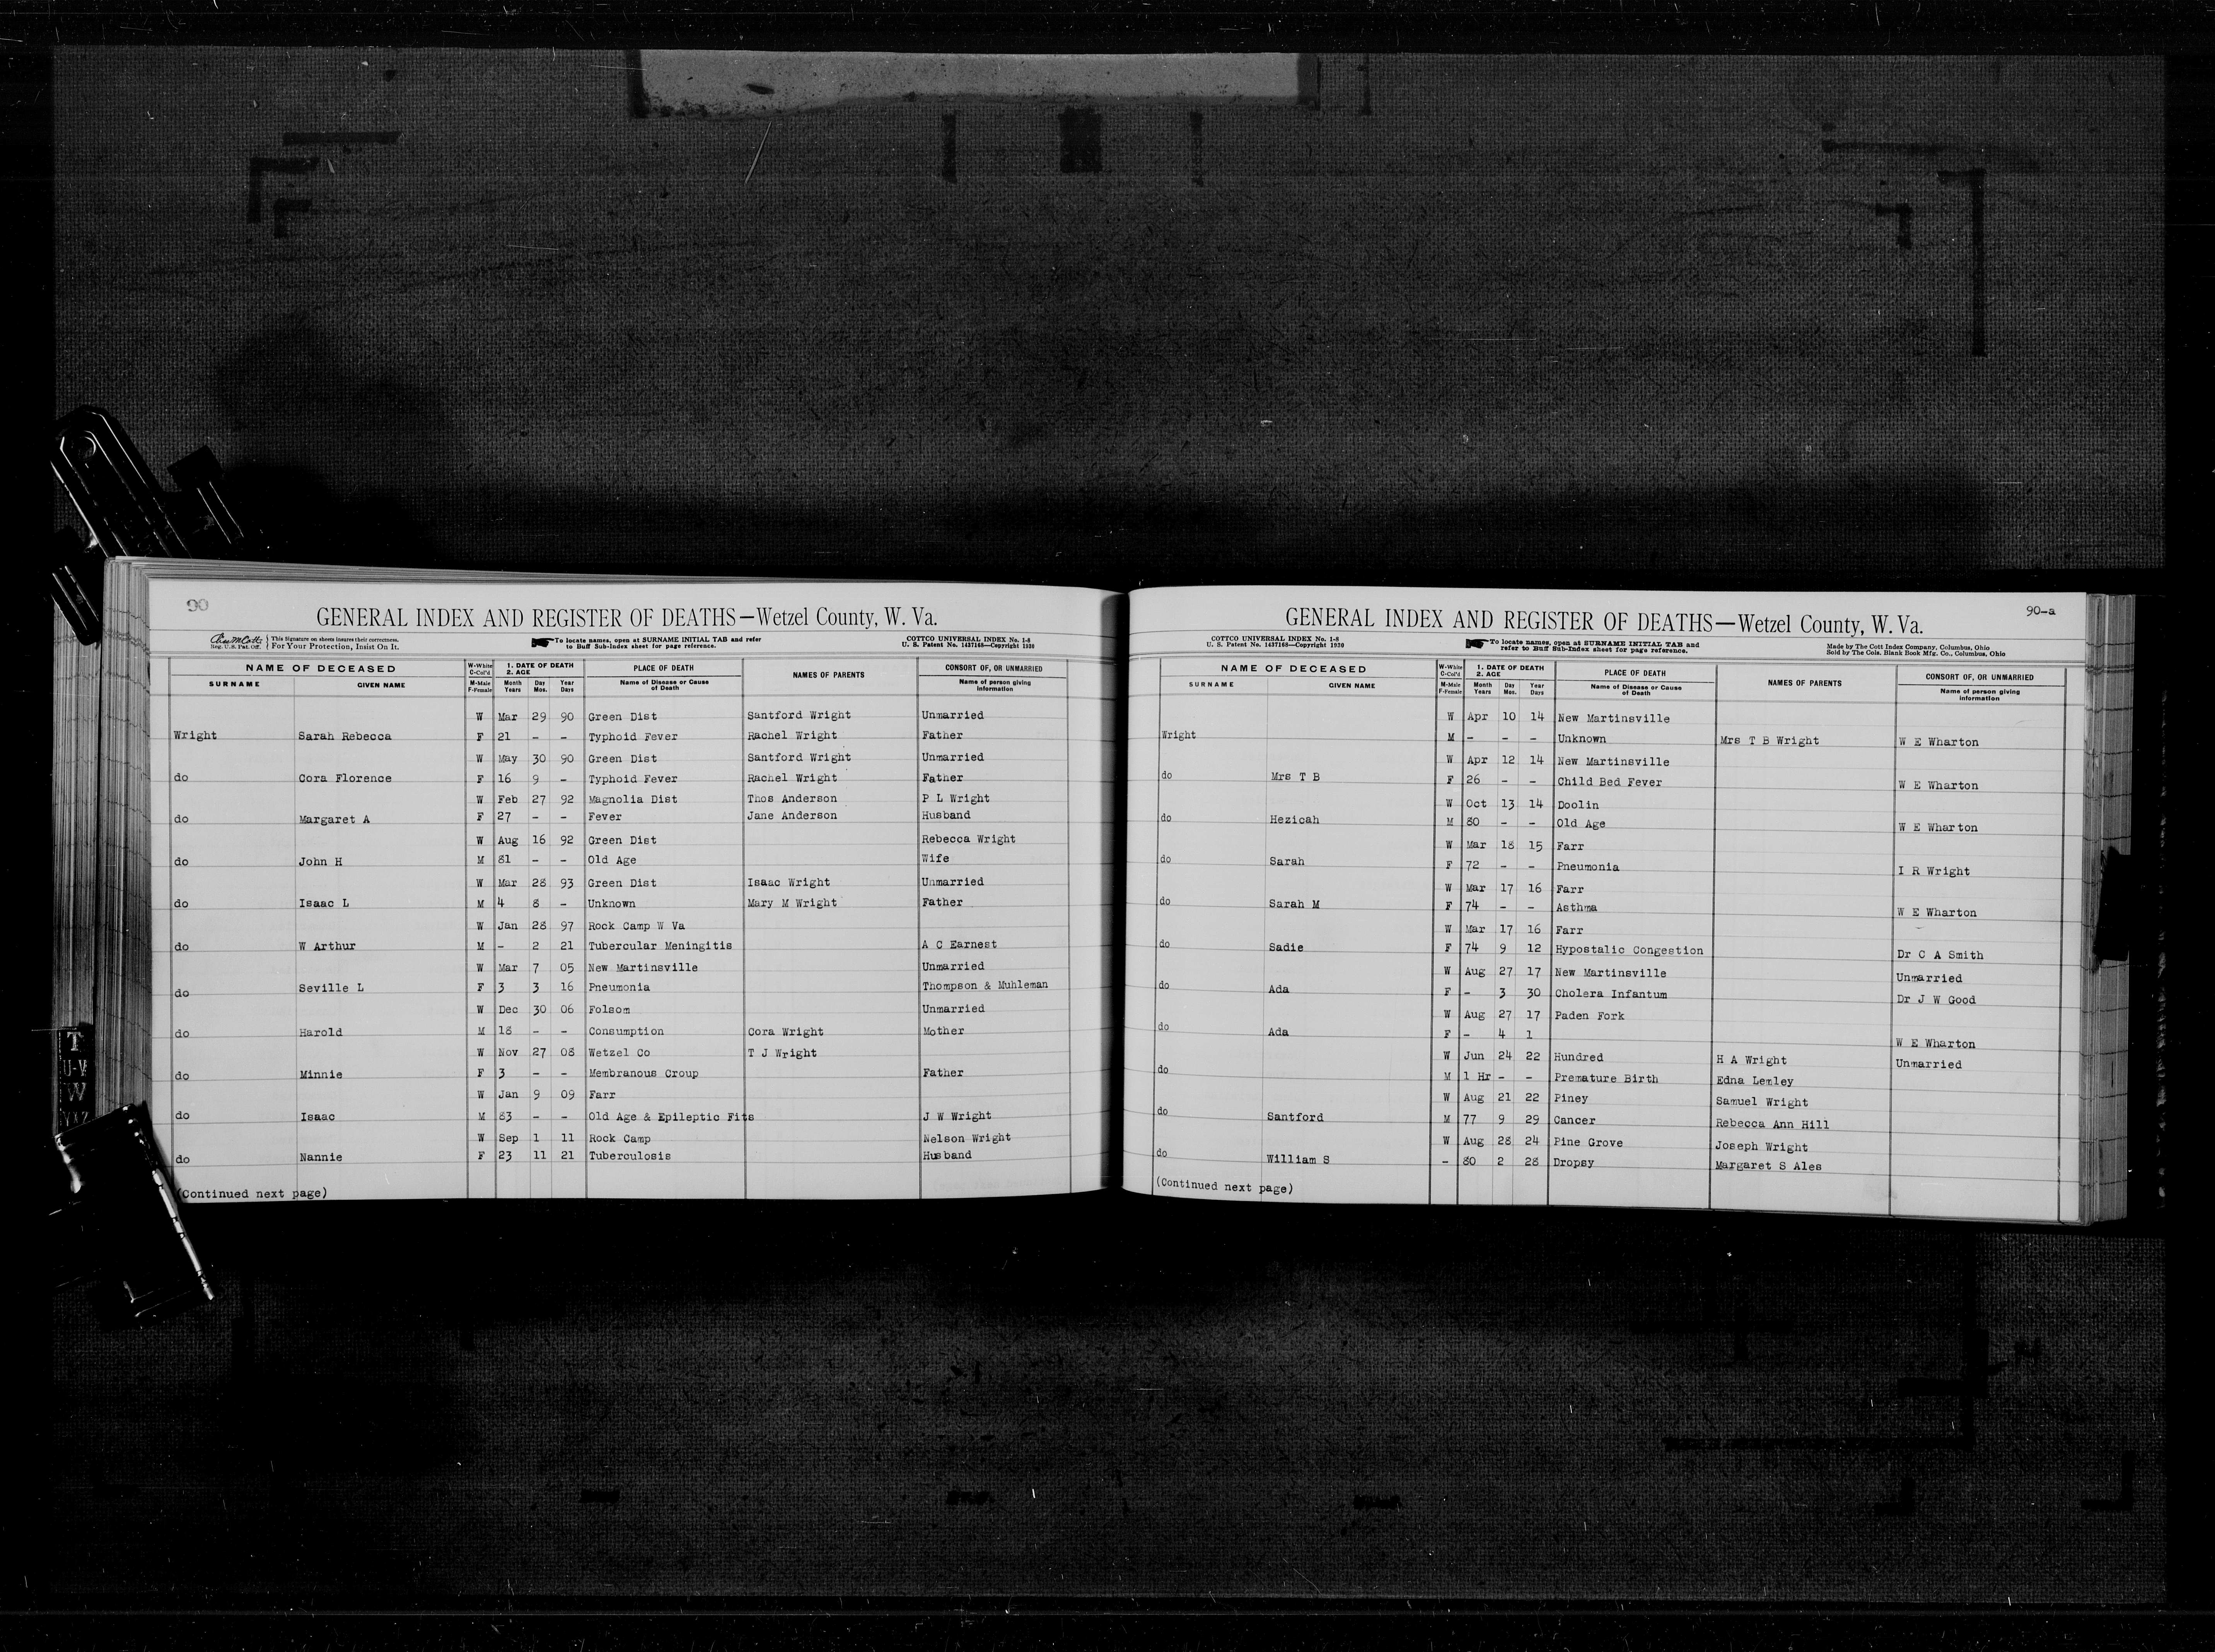 90
GENERAL INDEX AND REGISTER OF DEATHS—Wetzel County, W. Va.
Reg. U.S. Pat. Off. { This Signature on sheets insures their correctness. For Your Protection, Insist On It.
To locate names, open at SURNAME INITIAL TAB and refer to Buff Sub-Index sheet for page reference.
COTTCO UNIVERSAL INDEX No. 1-8
U. S. Patent No. 1437168—Copyright 1920
NAME OF DECEASED W-White C-Col'd 1. DATE OF DEATH 2. AGE PLACE OF DEATH NAMES OF PARENTS CONSORT OF, OR UNMARRIED
SURNAME GIVEN NAME M-Male F-Female Month Years Day Mos. Year Days Name of Disease or Cause of Death Name of person giving information
W Mar 29 90 Green Dist Santford Wright Unmarried
Wright Sarah Rebecca F 21 - - Typhoid Fever Rachel Wright Father
W May 30 90 Green Dist Santford Wright Unmarried
do Cora Florence F 16 9 - Typhoid Fever Rachel Wright Father
W Feb 27 92 Magnolia Dist Thos Anderson P L Wright
do Margaret A F 27 - - Fever Jane Anderson Husband
W Aug 16 92 Green Dist Rebecca Wright
do John H M 81 - - Old Age Wife
W Mar 28 93 Green Dist Isaac Wright Unmarried
do Isaac L M 4 8 - Unknown Mary M Wright Father
W Jan 28 97 Rock Camp W Va
do W Arthur M - 2 21 Tubercular Meningitis A C Earnest
W Mar 7 05 New Martinsville Unmarried
do Seville L F 3 3 16 Pneumonia Thompson & Muhleman
W Dec 30 06 Folsom Unmarried
do Harold M 18 - - Consumption Cora Wright Mother
W Nov 27 08 Wetzel Co T J Wright
do Minnie F 3 - - Membranous Croup Father
W Jan 9 09 Farr
do Isaac M 83 - - Old Age & Epileptic Fits J W Wright
W Sep 1 11 Rock Camp Nelson Wright
do Nannie F 23 11 21 Tuberculosis Husband
(Continued next page)
T
U-V
W
XYZ
90-a
GENERAL INDEX AND REGISTER OF DEATHS—Wetzel County, W. Va.
COTTCO UNIVERSAL INDEX No. 1-8
U. S. Patent No. 1437168—Copyright 1920
To locate names, open at SURNAME INITIAL TAB and refer to Buff Sub-Index sheet for page reference.
Made by The Cott Index Company, Columbus, Ohio
Sold by The Cols. Blank Book Mfg. Co., Columbus, Ohio
NAME OF DECEASED W-White C-Col'd 1. DATE OF DEATH 2. AGE PLACE OF DEATH NAMES OF PARENTS CONSORT OF, OR UNMARRIED
SURNAME GIVEN NAME M-Male F-Female Month Years Day Mos. Year Days Name of Disease or Cause of Death Name of person giving information
W Apr 10 14 New Martinsville
Wright M - - - Unknown Mrs T B Wright W E Wharton
W Apr 12 14 New Martinsville
do Mrs T B F 26 - - Child Bed Fever W E Wharton
W Oct 13 14 Doolin
do Hezicah M 80 - - Old Age W E Wharton
W Mar 18 15 Farr
do Sarah F 72 - - Pneumonia I R Wright
W Mar 17 16 Farr
do Sarah M F 74 - - Asthma W E Wharton
W Mar 17 16 Farr
do Sadie F 74 9 12 Hypostalic Congestion Dr C A Smith
W Aug 27 17 New Martinsville Unmarried
do Ada F - 3 30 Cholera Infantum Dr J W Good
W Aug 27 17 Paden Fork
do Ada F - 4 1 W E Wharton
W Jun 24 22 Hundred H A Wright Unmarried
do M 1 Hr - - Premature Birth Edna Lemley
W Aug 21 22 Piney Samuel Wright
do Santford M 77 9 29 Cancer Rebecca Ann Hill
W Aug 28 24 Pine Grove Joseph Wright
do William S - 80 2 28 Dropsy Margaret S Ales
(Continued next page)